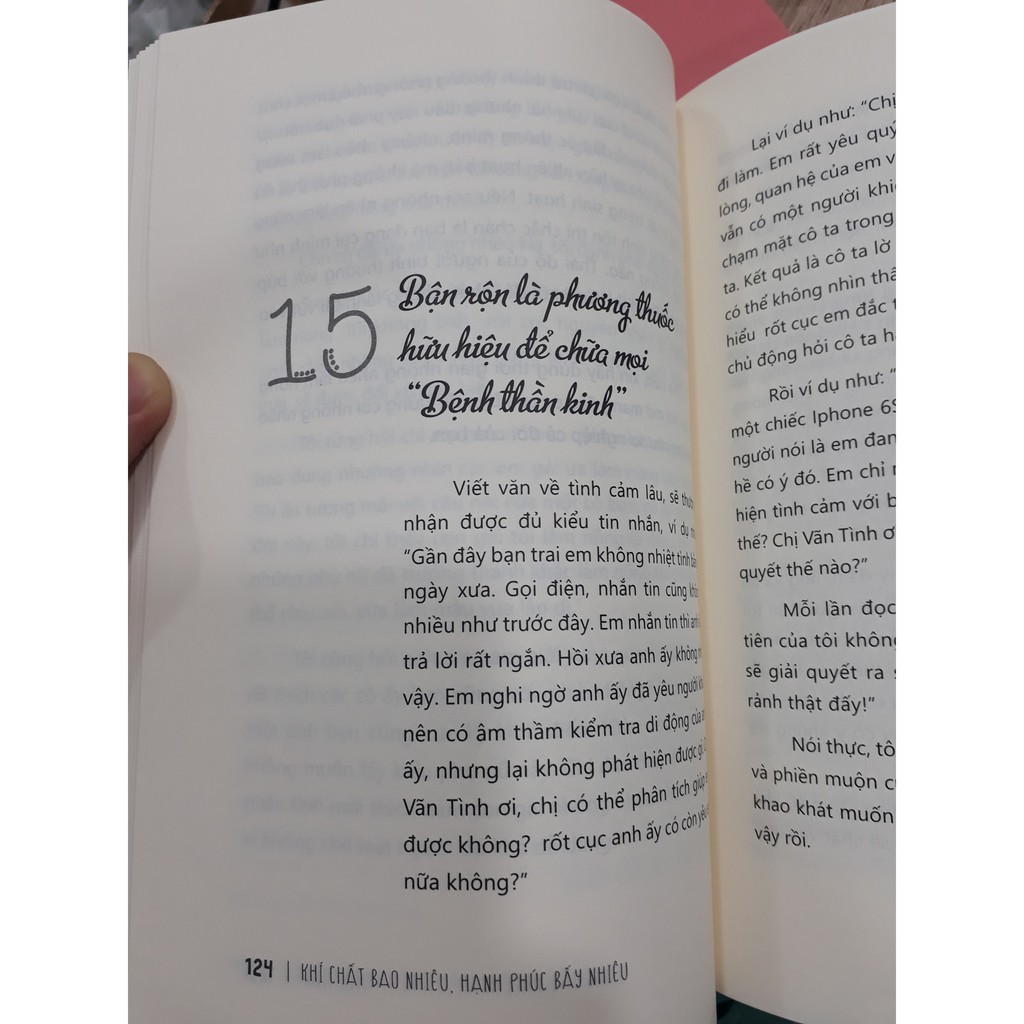 15
Bận rộn là phương thuốc
hữu hiệu để chữa mọi
“Bệnh thần kinh”
Viết văn về tình cảm lâu, sẽ
nhận được đủ kiểu tin nhắn, ví dụ
“Gần đây bạn trai em không nhiệt tình
ngày xưa. Gọi điện, nhắn tin cũng
nhiều như trước đây. Em nhắn tin thì
trả lời rất ngắn. Hồi xưa anh ấy không
vậy. Em nghi ngờ anh ấy đã yêu người
nên có âm thầm kiểm tra di động của
ấy, nhưng lại không phát hiện được gì
Văn Tình ơi, chị có thể phân tích giúp
được không? rốt cục anh ấy có còn
nữa không?”
124 | KHÍ CHẤT BAO NHIÊU, HẠNH PHÚC BẤY NHIÊU
Lại ví dụ như: “Chị
đi làm. Em rất yêu quý
lòng, quan hệ của em
vẫn có một người
chạm mặt cô ta trong
ta. Kết quả là cô ta lờ
có thể không nhìn
hiểu rốt cục em đắc
chủ động hỏi cô ta
Rồi ví dụ như:
một chiếc Iphone
người nói là em
hề có ý đó. Em chỉ
hiện tình cảm với
thế? Chị Văn Tình
quyết thế nào?”
Mỗi lần đọc
tiên của tôi
sẽ giải quyết ra
rảnh thật đấy!”
Nói thực,
và phiền muộn
khao khát muốn
vậy rồi.